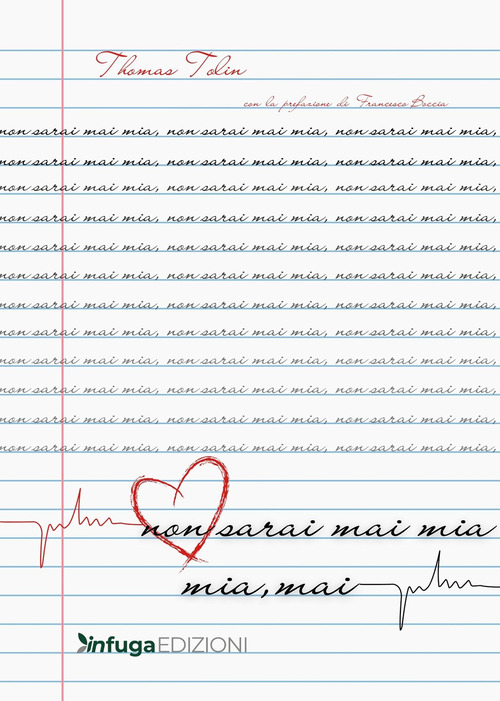 Thomas Tolin
con la prefazione di Francesco Boccia
non sarai mai mia, non sarai mai mia, non sarai mai mia,
non sarai mai mia, non sarai mai mia, non sarai mai mia,
non sarai mai mia, non sarai mai mia, non sarai mai mia,
non sarai mai mia, non sarai mai mia, non sarai mai mia,
non sarai mai mia, non sarai mai mia, non sarai mai mia,
non sarai mai mia, non sarai mai mia, non sarai mai mia,
non sarai mai mia, non sarai mai mia, non sarai mai mia,
non sarai mai mia, non sarai mai mia, non sarai mai mia,
non sarai mai mia, non sarai mai mia, non sarai mai mia,
non sarai mai mia, non sarai mai mia, non sarai mai mia,
non sarai mai mia, non sarai mai mia, non sarai mai mia,
non sarai mai mia, non sarai mai mia, non sarai mai mia,
non sarai mai mia
mia, mai
infugaEDIZIONI